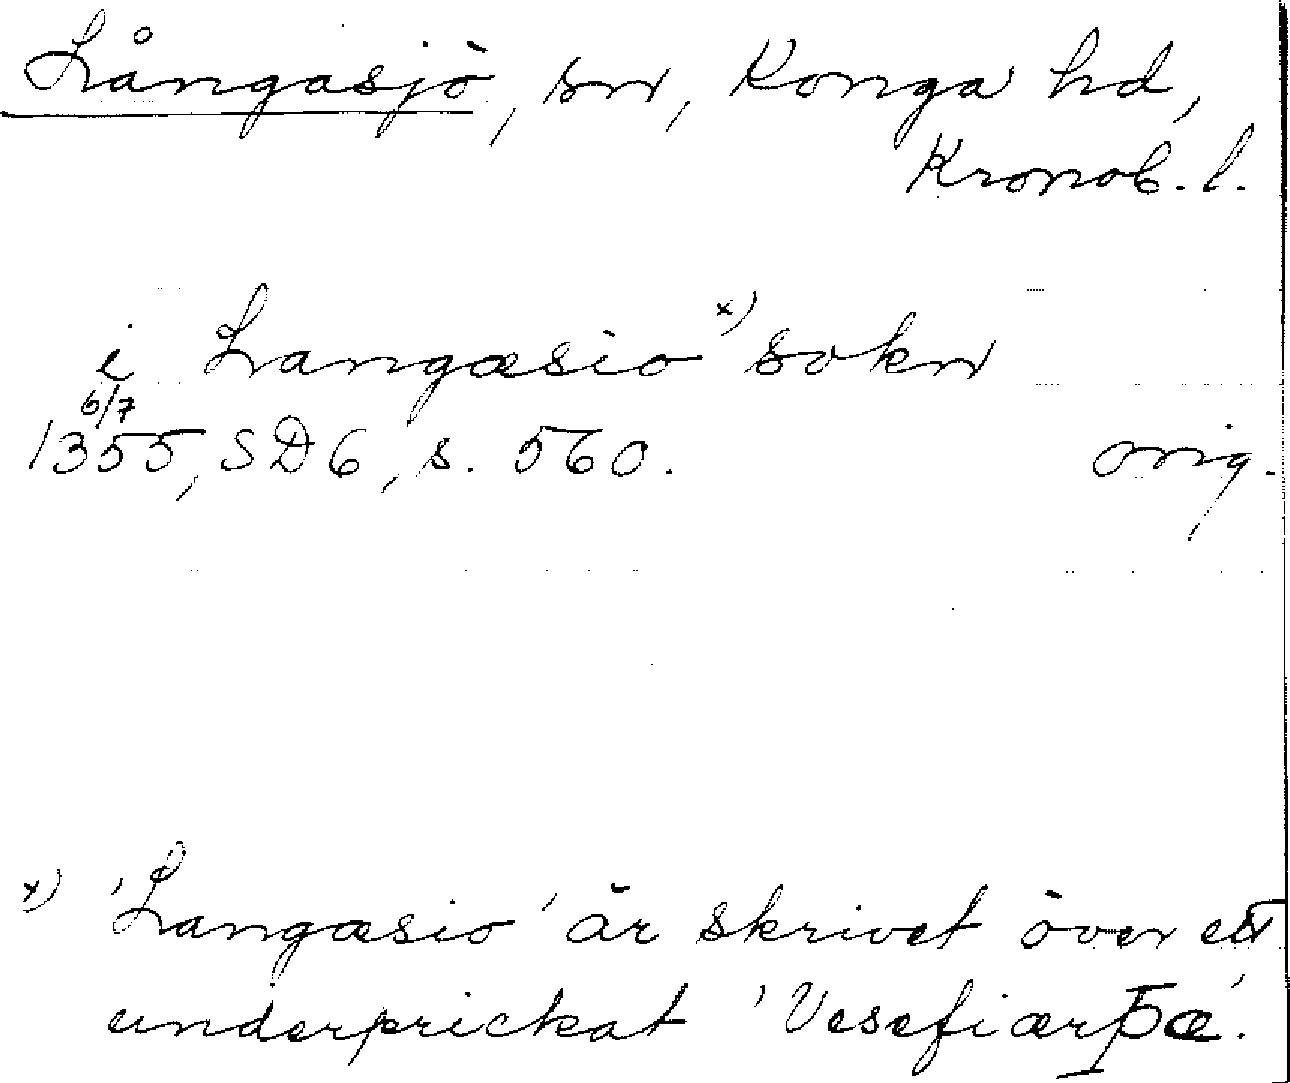 Långasjö, sn, Konga hd,
Kronob. l.
i Langæsio x) sokn
6/7
1355, SD6, s. 560. orig.
x) 'Langæsio' är skrivet över ett
underprickat 'Vesefiærþæ'.